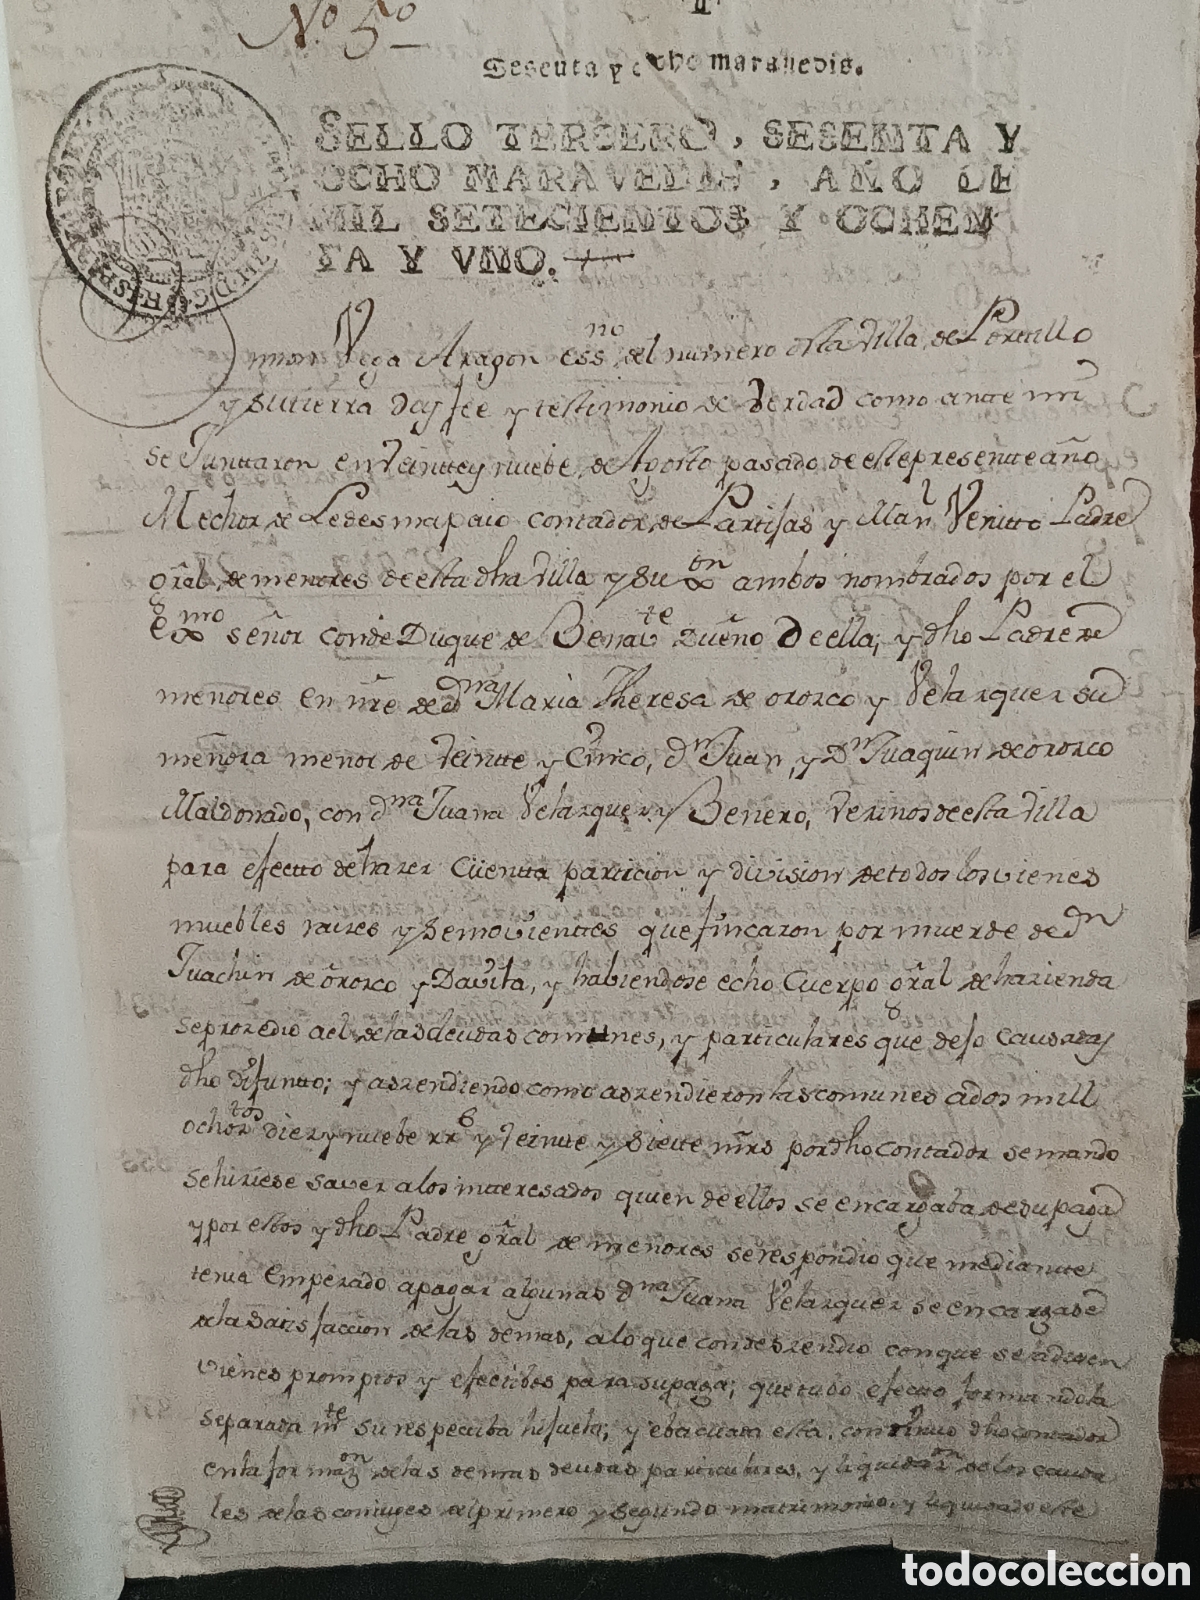 Nº. 5º
Sesenta y ocho maravedis.
SELLO TERCERO, SESENTA Y
OCHO MARAVEDIS, AÑO DE
MIL SETECIENTOS Y OCHEN
TA Y UNO.
Vega Aragon essno del numero esta Villa de Portillo
y su tierra Doy fee y testimonio de Verdad como ante mi
se Junttaron en Veintte y nuebe de Agosto pasado de este presentte año
Mechor de Ledesma paio contador de Partijas y Man.l Venitto Padre
gral de menores de esta dha Villa y su ambos nombrados por el
exmo señor conde Duque de Benavte dueño de ella; y dho Padre de
menores en nre de dna Maria Theresa de orozco y Velazquez su
menora menor de Veintte y Cinco, dn Juan, y Dn Juaquin de orozco
Maldonado, con dna Juana Velazquez y Benero, Vezinos de esta Villa
para efectto de hazer Cüentta particion y division de todos los vienes
muebles raizes y semovienttes que fincaron por muerde de dn
Juachin de orozco y Davila, y habiendose echo Cuerpo gral de hazienda
se prozedio a el de las deudas comunes, y particulares que dejo causadas
dho difuntto; y aszendiendo como aszendieron las comunes a dos mill
ochoztos diez y nuebe rrs y Veintte y siette mrs por dho contador se mando
se hiziese saver a los intteresados quien de ellos se encargaba de su paga
y por estos y dho Padre gral de menores se respondio que mediantte
tenia empezado a pagar algunas dna Juana Velazquez se encargase
de la satisfaccion de las demas, a lo que condeszendio con que se adizen
vienes promptos y efectibos para su paga; que tubo efecto formandola
separada mte su respectiba hijuela; y ebacuada esta, continuo dho contador
en la formazon de las demas deudas particulares, y liquidazon de los cauda
les de las coniuges del primero y segundo matrimonio, y liquidado este
todocoleccion